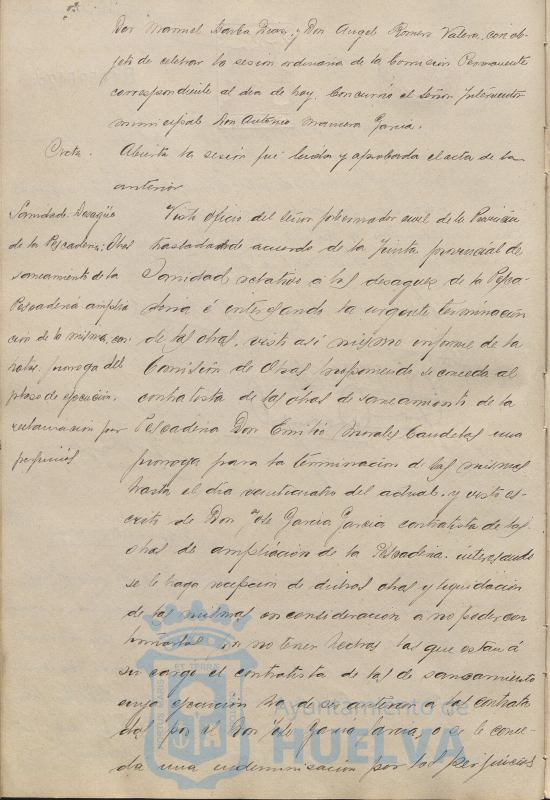 Don Manuel Barba Diaz, y Don Angel Romero Valero, con ob-
jeto de celebrar la sesión ordinaria de la Comisión Permanente
correspondiente al dia de hoy. Concurrio el Señor Interventor
municipal Don Antonio Garcia.
Acta.
Abierta la sesión fué leida y aprobada el acta de la
anterior
Sanidad. Desagüe
de la Pescaderia; Obras
saneamiento de la
Pescaderia amplia
cion de la misma, con-
tratos, proroga del
plazo de ejecución,
reclamacion por
perjuicios
Visto oficio del Señor Gobernador civil de la Provincia
trasladando acuerdo de la Junta provincial de
Sanidad relativo a los desagues de la Pesca-
deria é interesando la urgente terminacion
de las obras, visto asi mismo informe de la
Comisión de Obras proponiendo se conceda al
contratista de las obras de saneamiento de la
Pescaderia Don Emilio Morales Caudelas una
proroga para la terminacion de las mismas
hasta el dia veinticuatro del actual, y visto es-
crito de Don Jose Garcia Garcia contratista de las
obras de ampliación de la Pescaderia interesando
se le haga recepcion de dichas obras y liquidación
de las mismas en consideracion a no poder con
tinuarlas por no tener hechas las que estan á
su cargo el contratista de las de saneamiento
cuya ejecucion ha de ser anterior a las contrata
das por el Don Jose Garcia Garcia, o se le conce-
da una indemnizacion por los perjuicios
Ayuntamiento de
HUELVA